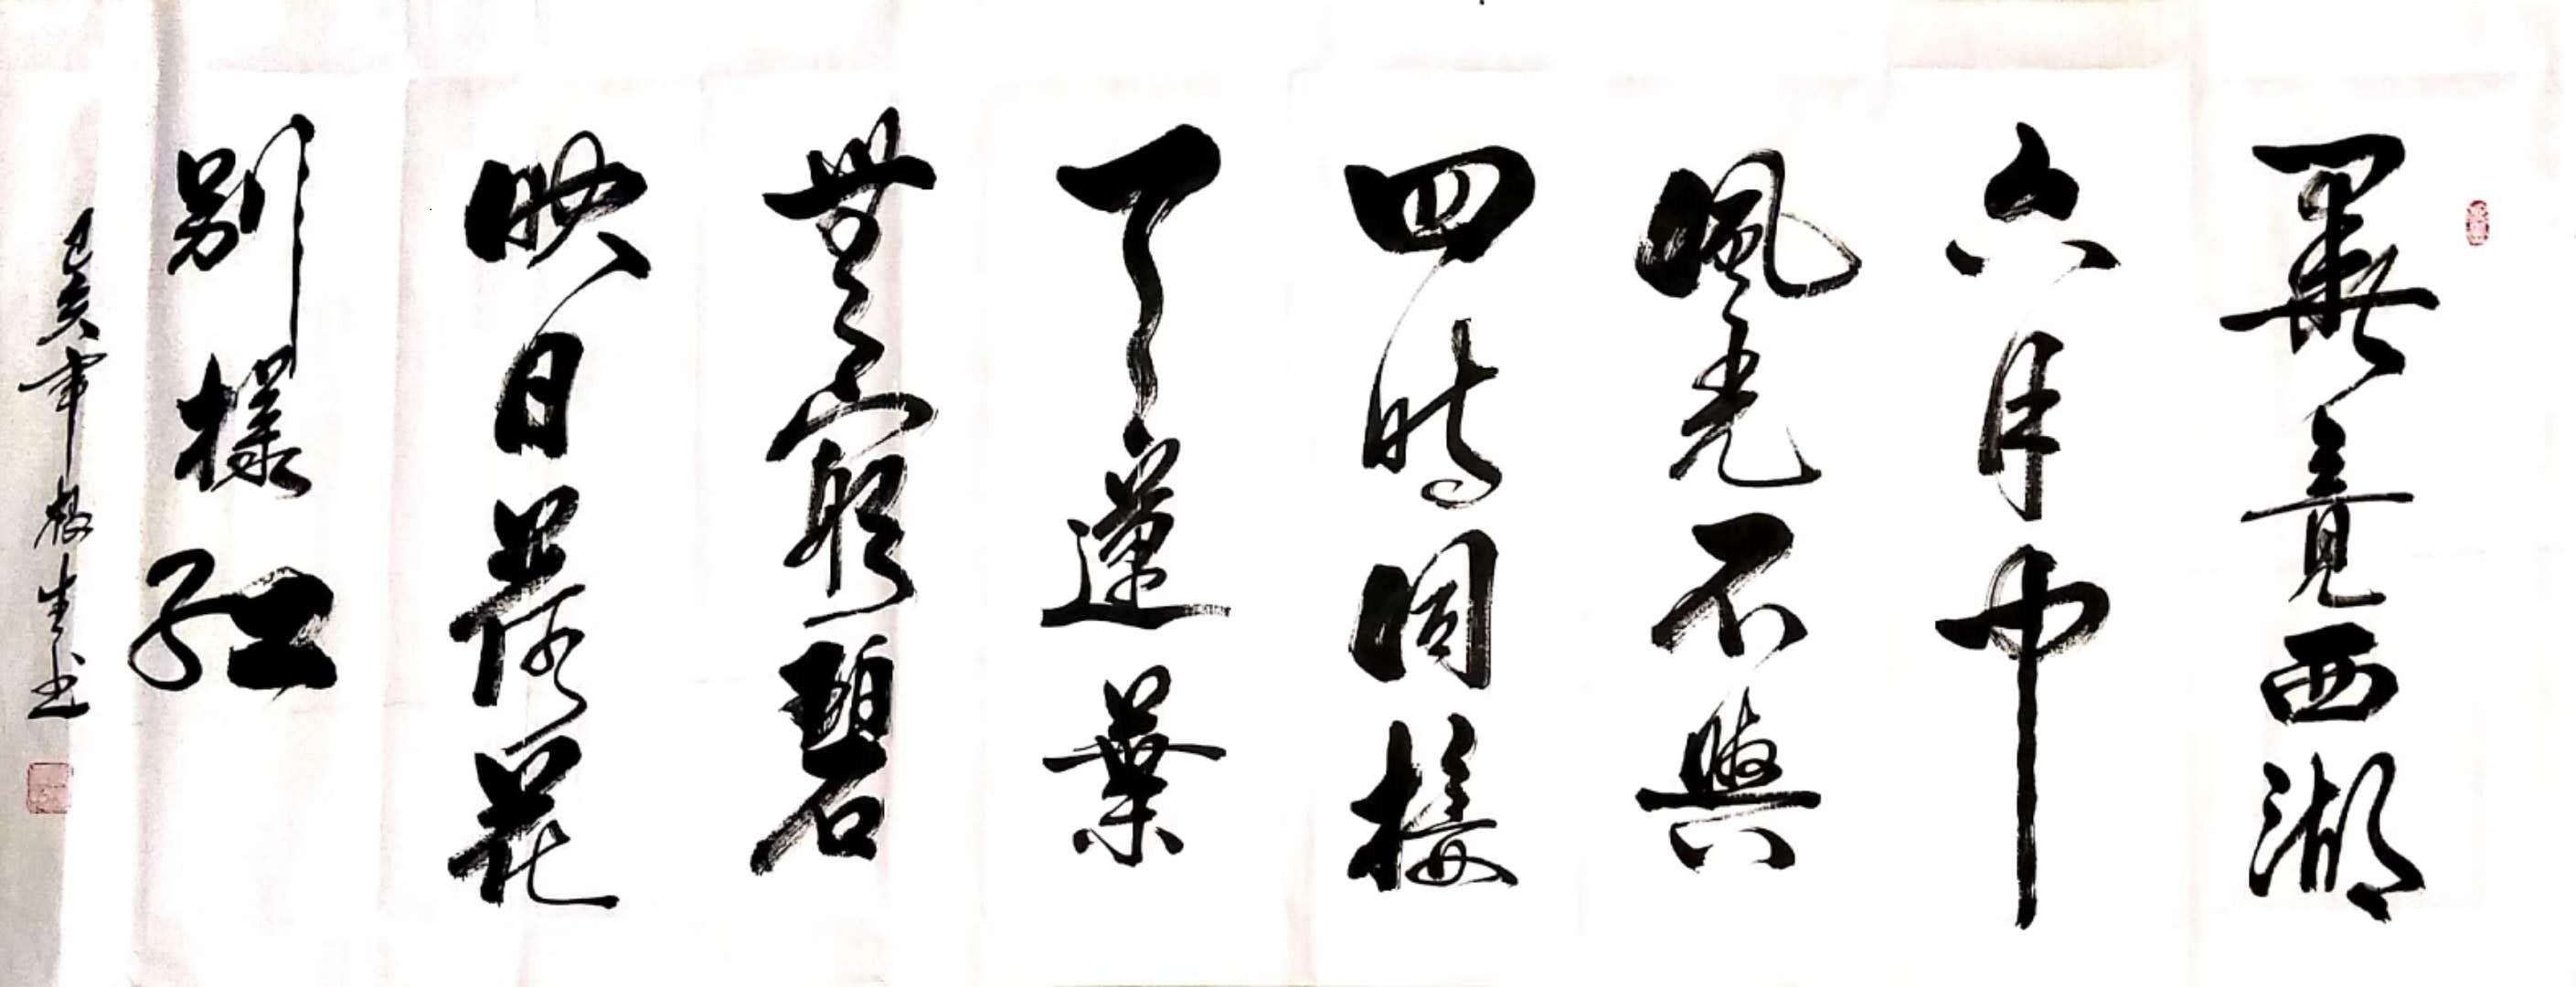 畢竟西湖
六月中
風光不與
四時同接
天蓮葉
無窮碧
映日荷花
别樣紅
己亥年根生书